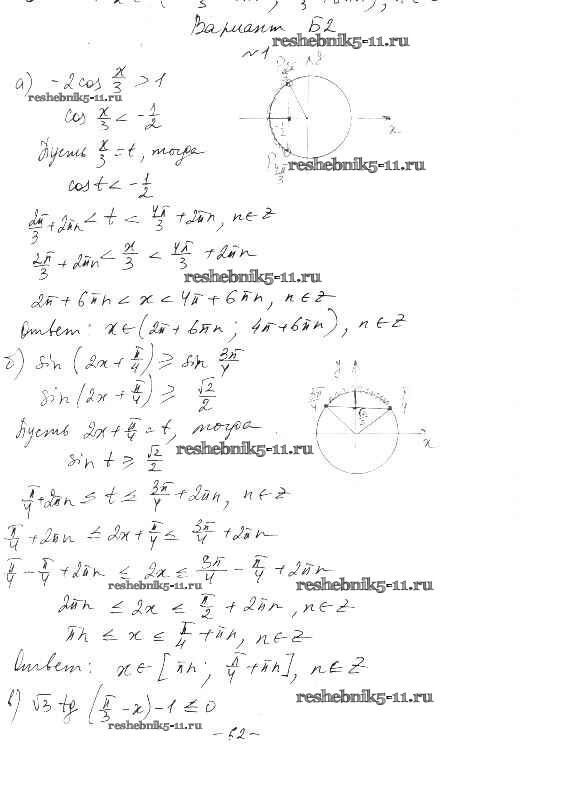 Вариант Б2
reshebnik5-11.ru
№1
а) -2cos x/3 > 1
reshebnik5-11.ru
cos x/3 < -1/2
Пусть x/3 = t, тогда
reshebnik5-11.ru
cos t < -1/2
2π/3 + 2πn < t < 4π/3 + 2πn, n∈Z
2π/3 + 2πn < x/3 < 4π/3 + 2πn
reshebnik5-11.ru
2π + 6πn < x < 4π + 6πn, n∈Z
Ответ: x∈(2π + 6πn; 4π + 6πn), n∈Z
б) sin(2x + π/4) ≥ sin 3π/4
sin(2x + π/4) ≥ √2/2
Пусть 2x + π/4 = t, тогда
reshebnik5-11.ru
sin t ≥ √2/2
π/4 + 2πn ≤ t ≤ 3π/4 + 2πn, n∈Z
π/4 + 2πn ≤ 2x + π/4 ≤ 3π/4 + 2πn
π/4 - π/4 + 2πn ≤ 2x ≤ 3π/4 - π/4 + 2πn
reshebnik5-11.ru reshebnik5-11.ru
2πn ≤ 2x ≤ π/2 + 2πn, n∈Z
πn ≤ x ≤ π/4 + πn, n∈Z
Ответ: x∈[πn; π/4 + πn], n∈Z
reshebnik5-11.ru
в) √3 tg(π/3 - x) - 1 ≤ 0
reshebnik5-11.ru
- 62 -